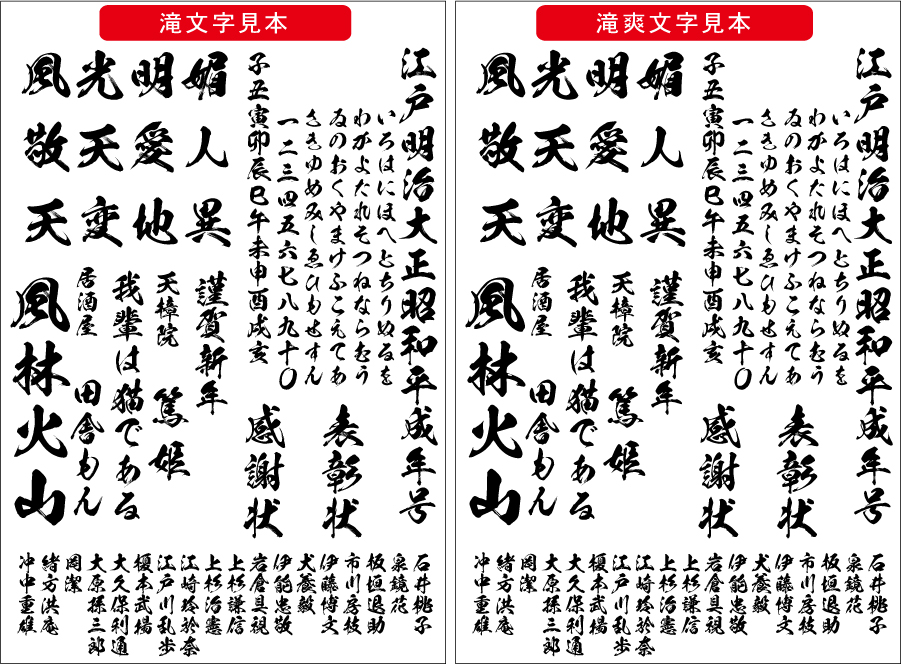 滝文字見本
江戸明治大正昭和平成年号
いろはにほへとちりぬるを
わかよたれそつねならむう
ゐのおくやまけふこえてあ
さきゆめみしゑひもせすん
一二三四五六七八九十〇
子丑寅卯辰巳午未申酉戌亥
表彰状
感謝状
媚人異
明愛地
光天変
風敬天
謹賀新年
天樟院 篤姫
我輩は猫である
居酒屋 田舎もん
風林火山
石井桃子
泉鏡花
板垣退助
市川房枝
伊藤博文
犬養毅
伊能忠敬
岩倉具視
上杉謙信
上杉治憲
江崎玲於奈
江戸川乱歩
榎本武揚
大久保利通
大原孫三郎
岡潔
緒方洪庵
沖中重雄
滝爽文字見本
江戸明治大正昭和平成年号
いろはにほへとちりぬるを
わかよたれそつねならむう
ゐのおくやまけふこえてあ
さきゆめみしゑひもせすん
一二三四五六七八九十〇
子丑寅卯辰巳午未申酉戌亥
表彰状
感謝状
媚人異
明愛地
光天変
風敬天
謹賀新年
天樟院 篤姫
我輩は猫である
居酒屋 田舎もん
風林火山
石井桃子
泉鏡花
板垣退助
市川房枝
伊藤博文
犬養毅
伊能忠敬
岩倉具視
上杉謙信
上杉治憲
江崎玲於奈
江戸川乱歩
榎本武揚
大久保利通
大原孫三郎
岡潔
緒方洪庵
沖中重雄